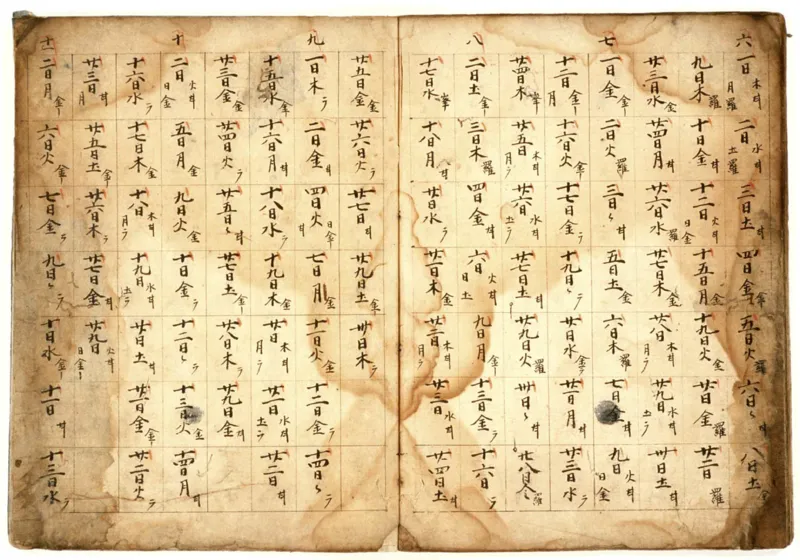 六 一日 木 月羅 二日 水 土羅 三日土 四日金 五日火羅 六日〻 八日土金
九日木羅 十日金 十二日 火 日金 十五日月金 十九日火 廿日金羅 廿二日羅
廿三日水金 廿四日月 廿六日水羅 廿七日木 廿八日 木 月ラ 廿九日 水 土ラ 卅日土
七 一日金金 二日火羅 三日〻 五日土金 六日木羅 七日金 九日 火 日金
十二日金 月 十六日火 十七日金ラ 十九日〻ラ 廿日水金 廿一日月 廿三日水ラ
廿四日木 廿五日 木 月ラ 廿六日 水 土ラ 廿七日土 廿九日火羅 卅日〻 廿八日金羅
八 二日土金 三日木羅 四日金 六日 火 日土 九日月 十三日金ラ 十六日ラ
十七日水 十八日月 廿日水ラ 廿一日木金 廿二日 木 月ラ 廿三日 水 廿四日土
廿五日金金 廿六日火ラ 廿七日 廿九日土 卅日木ラ
九 一日木ラ 二日金 四日火 日金 七日月金 十一日火金 十二日金ラ 十四日〻ラ
十五日水金 十六日月 十八日水ラ 十九日木金 廿日 木 月ラ 廿一日 水 土ラ 廿二日
廿三日金金 廿四日火ラ 廿五日〻 廿七日土金 廿八日木ラ 廿九日金
十 二日 火 日金 五日月金 九日火金 十日金ラ 十二日〻ラ 十三日火金 十四日月
十六日水ラ 十七日木金 十八日 木 月ラ 十九日 水 土ラ 廿日土 廿一日金 廿二日火ラ
廿三日月 月 廿五日土 廿六日木ラ 廿七日金 廿九日 火 日金
十一 二日月金 六日火 七日金ラ 九日〻ラ 十日水金 十一日 十三日水ラ